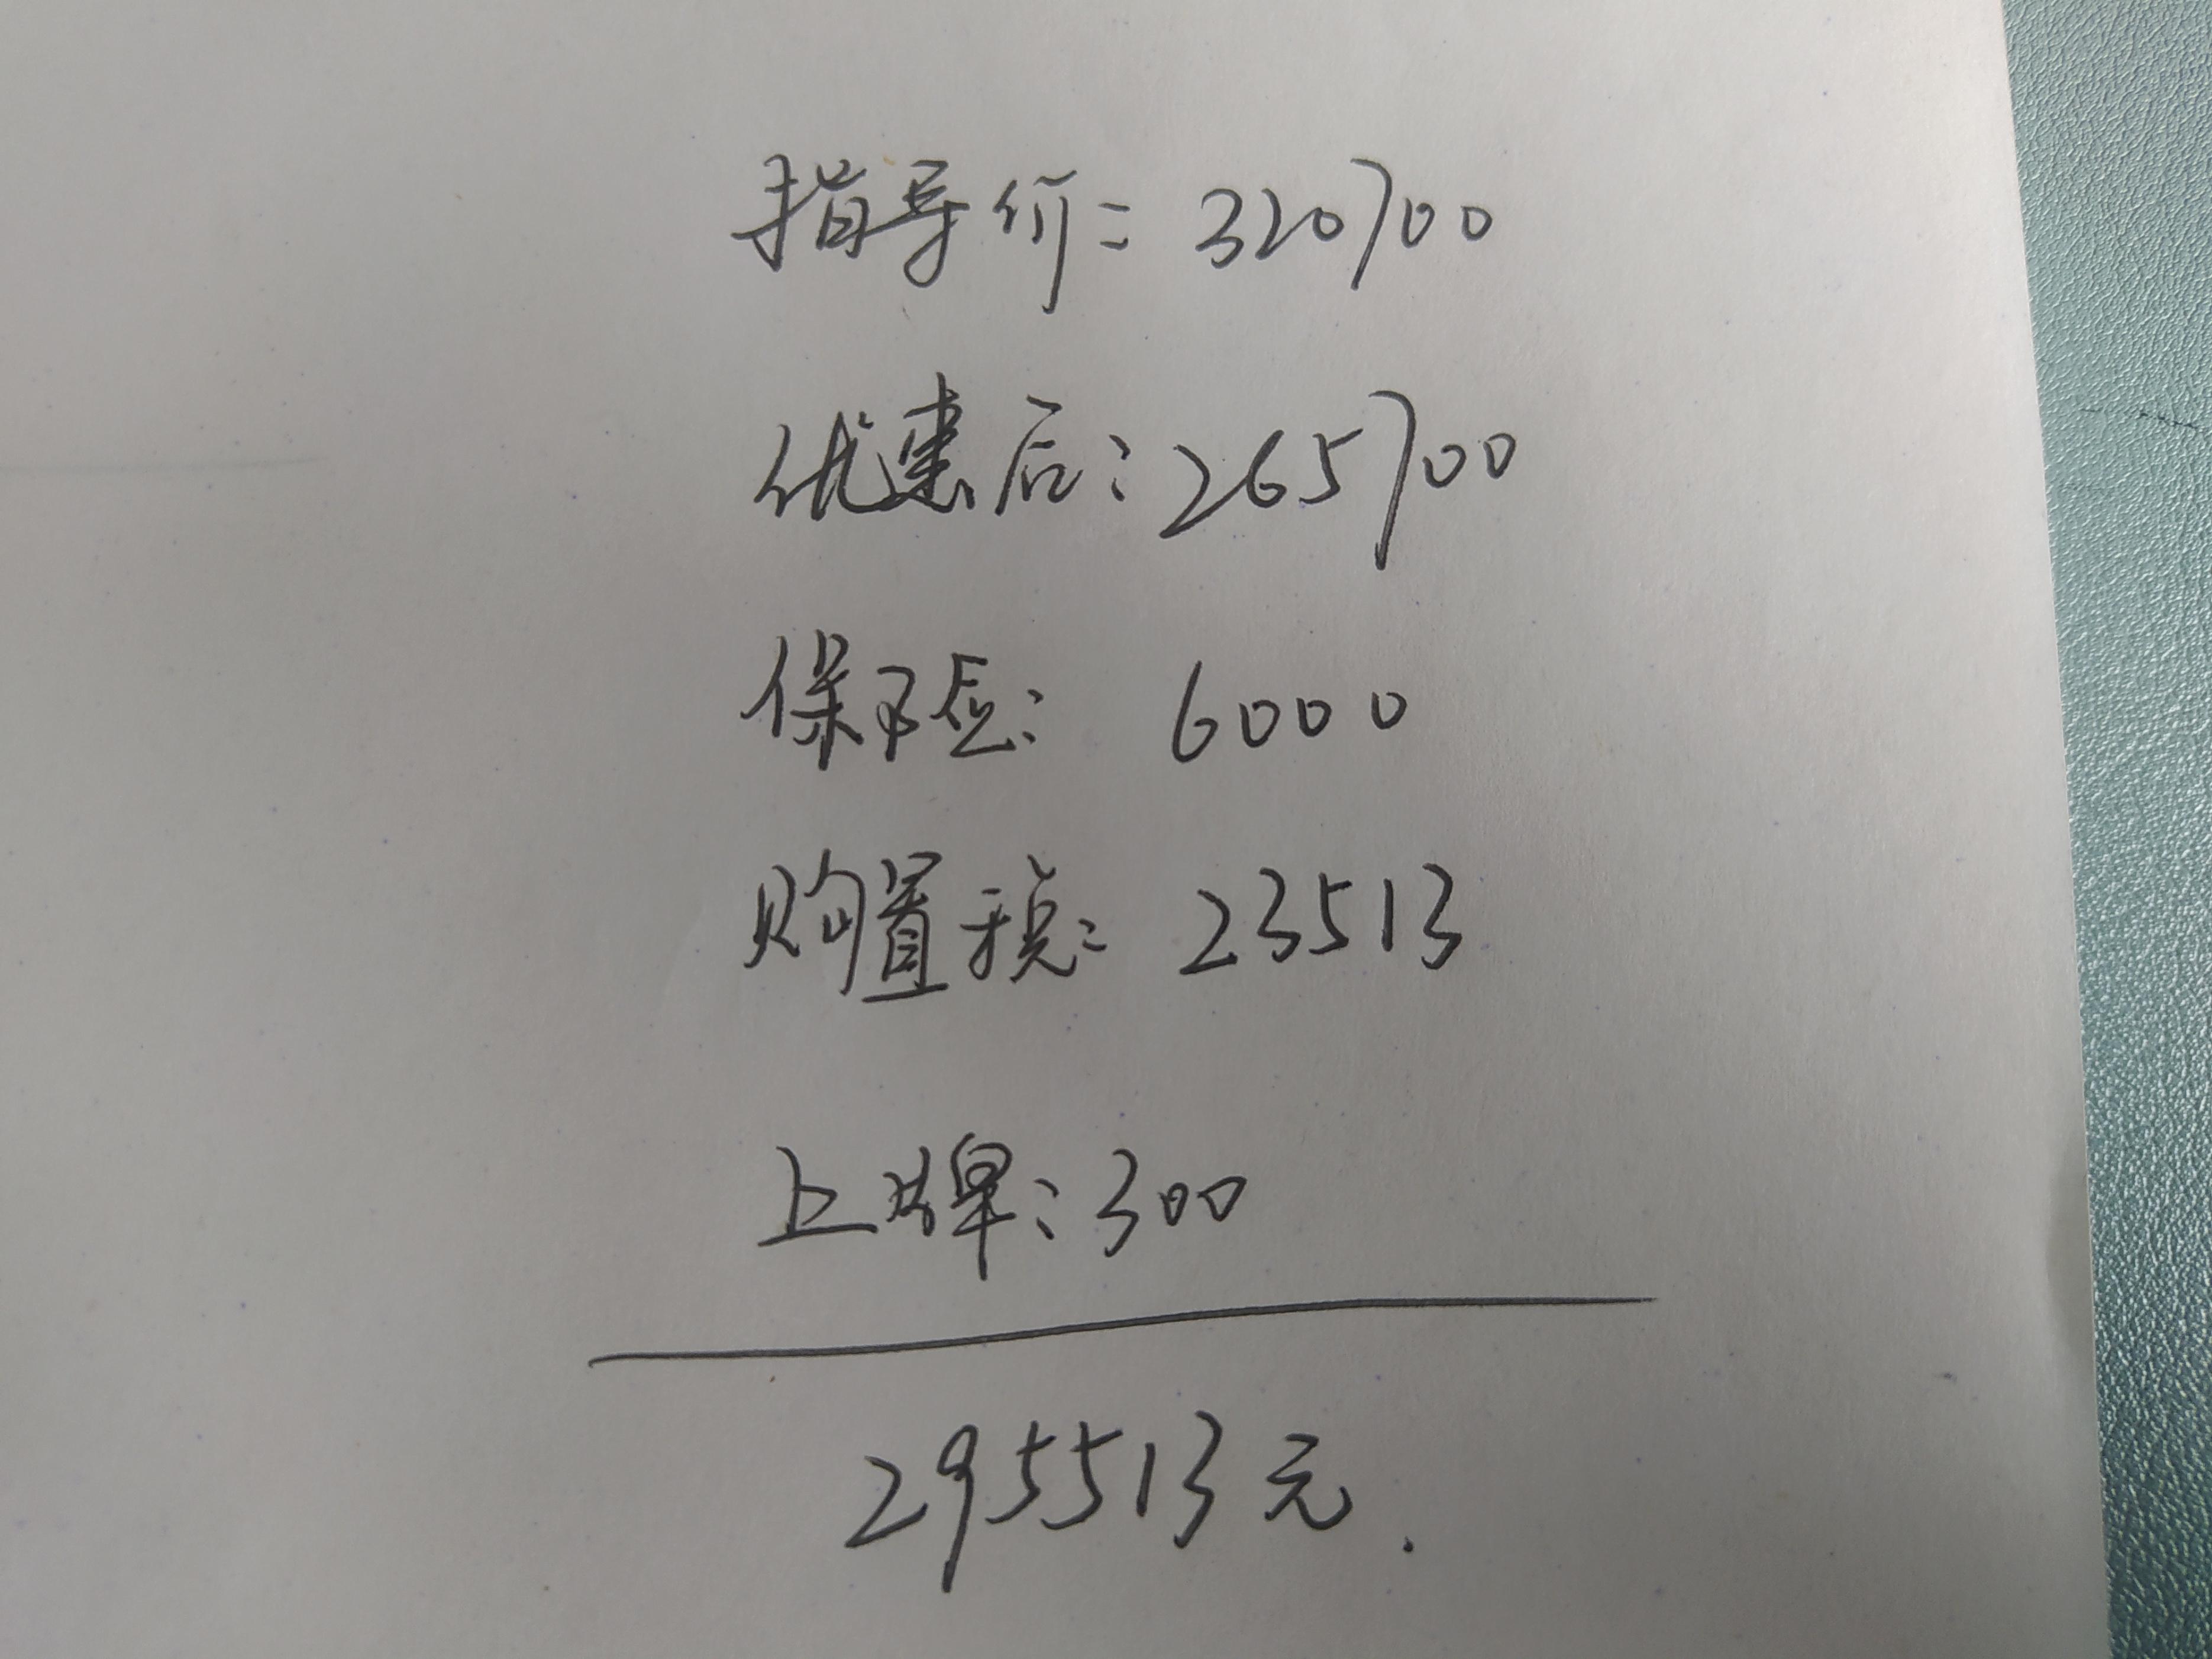 指导价：320700
优惠后：265700
保险：6000
购置税：23513
上牌：300
295513元.